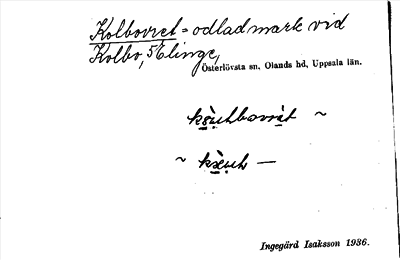 Kolbovret = odlad mark vid
Kolbo, Elinge,
Österlövsta sn, Olands hd, Uppsala län.
~
~ —
Ingegärd Isaksson 1936.